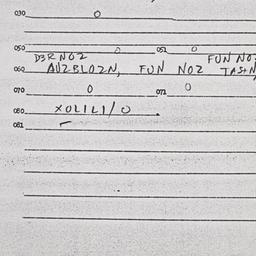 030 0
050 0 051 0
D3RNOZ FUN NO
060 AUZBLOZN, FUN NOZ TASN
070 0 071 0
080 XOLILI/O
081